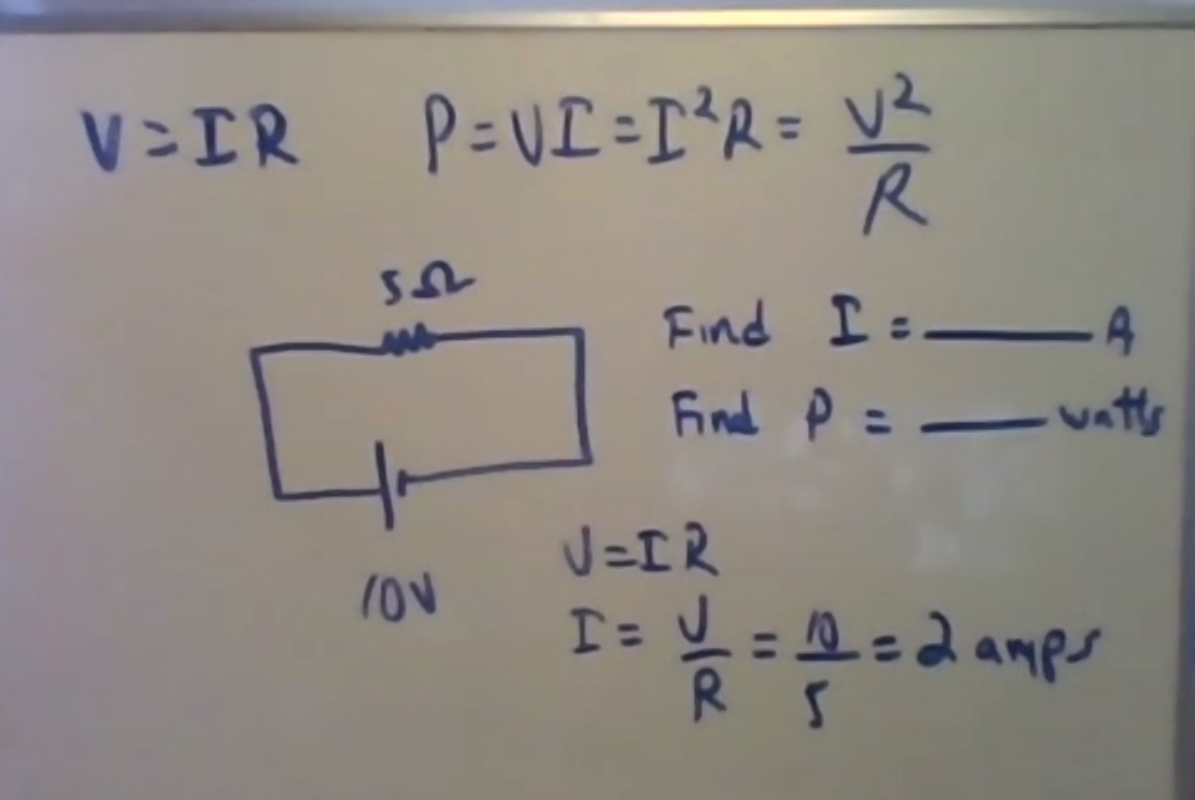 V = IR P = VI = I²R = V²/R
5Ω
Find I = ______ A
Find P = ____ watts
10V
V = IR
I = V/R = 10/5 = 2 amps